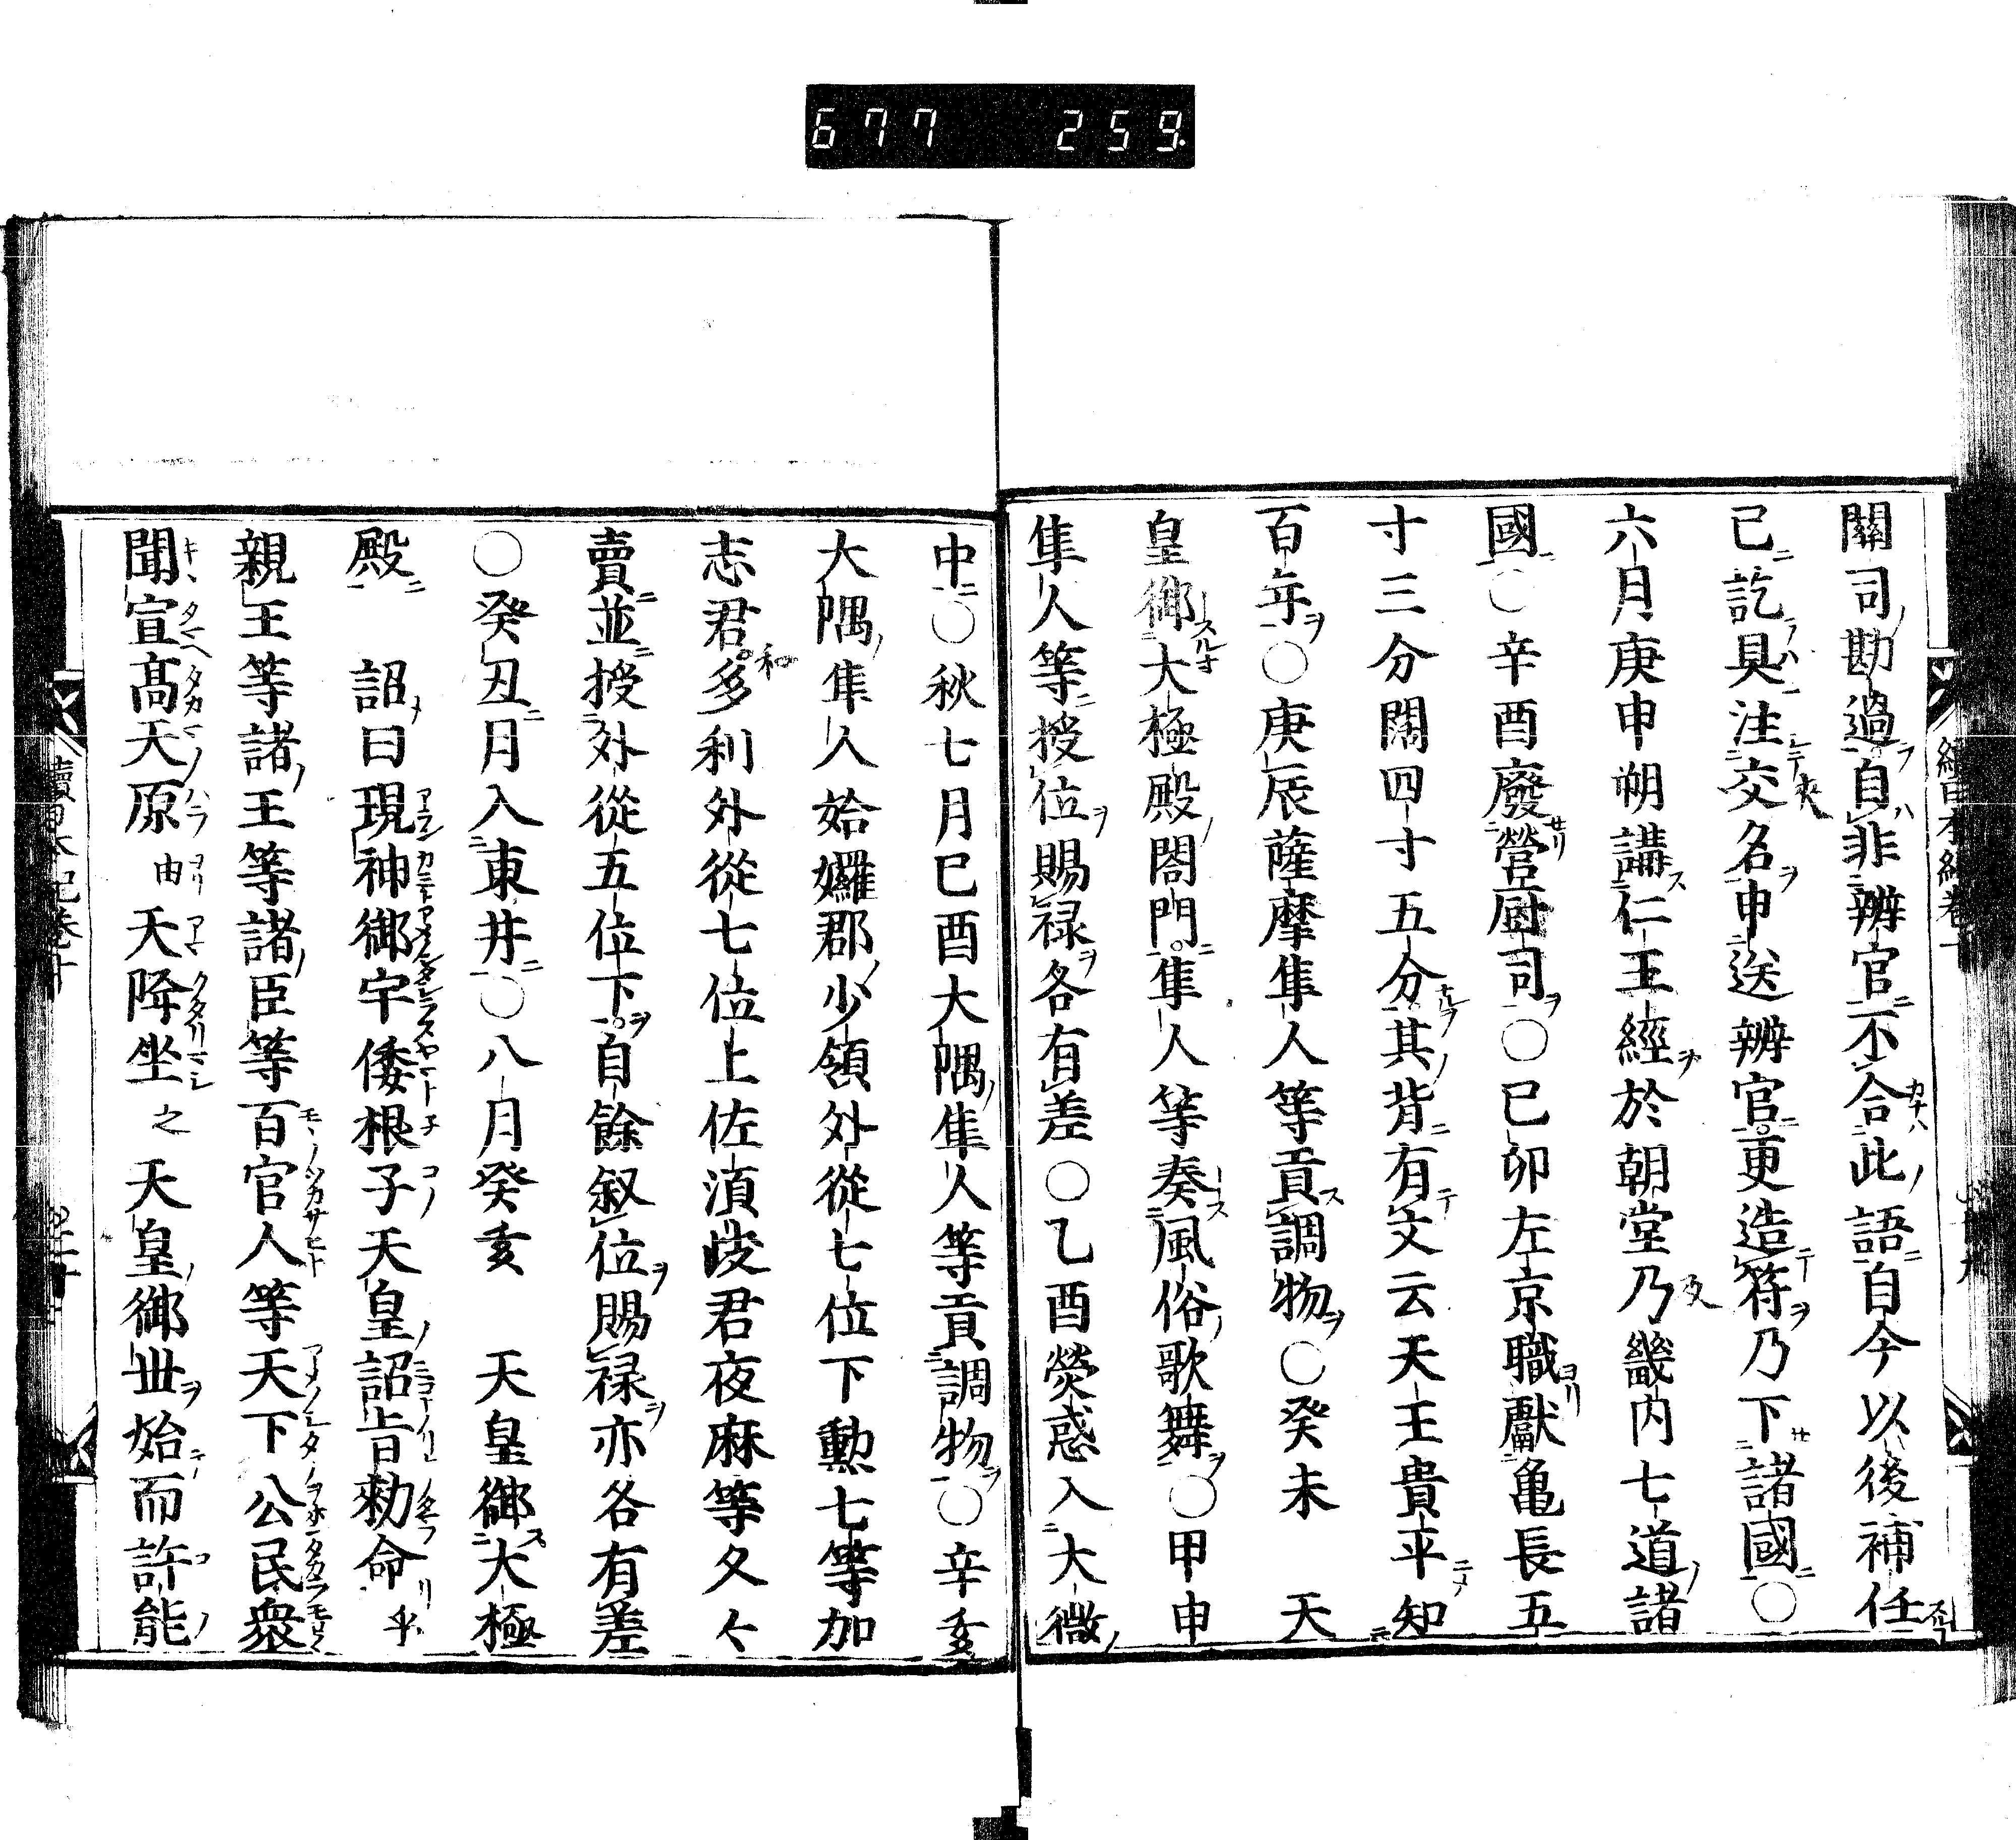 677 259
關司勘過自非辨官不合此語自今以後補任
已訖具注交名申送辨官更造符乃下諸國○
六月庚申朔講仁王經於朝堂乃畿内七道諸
國○辛酉廢營厨司○己卯左京職獻亀長五
寸三分闊四寸五分其背有文云天王貴平知
百年○庚辰薩摩隼人等貢調物○癸未　天
皇御大極殿閤門隼人等奏風俗歌舞○甲申
隼人等授位賜禄各有差○乙酉熒惑入大微
中○秋七月己酉大隅隼人等貢調物○辛亥
大隅隼人姶𡤢郡少領外從七位下勳七等加
志君多利外從七位上佐須岐君夜麻等久々
賣並授外從五位下自餘叙位賜禄亦各有差
○癸丑月入東井○八月癸亥　天皇御大極
殿　詔曰現神御宇倭根子天皇詔旨勅命乎
親王等諸王等諸臣等百官人等天下公民衆
聞宣高天原由天降坐之天皇御世始而許能